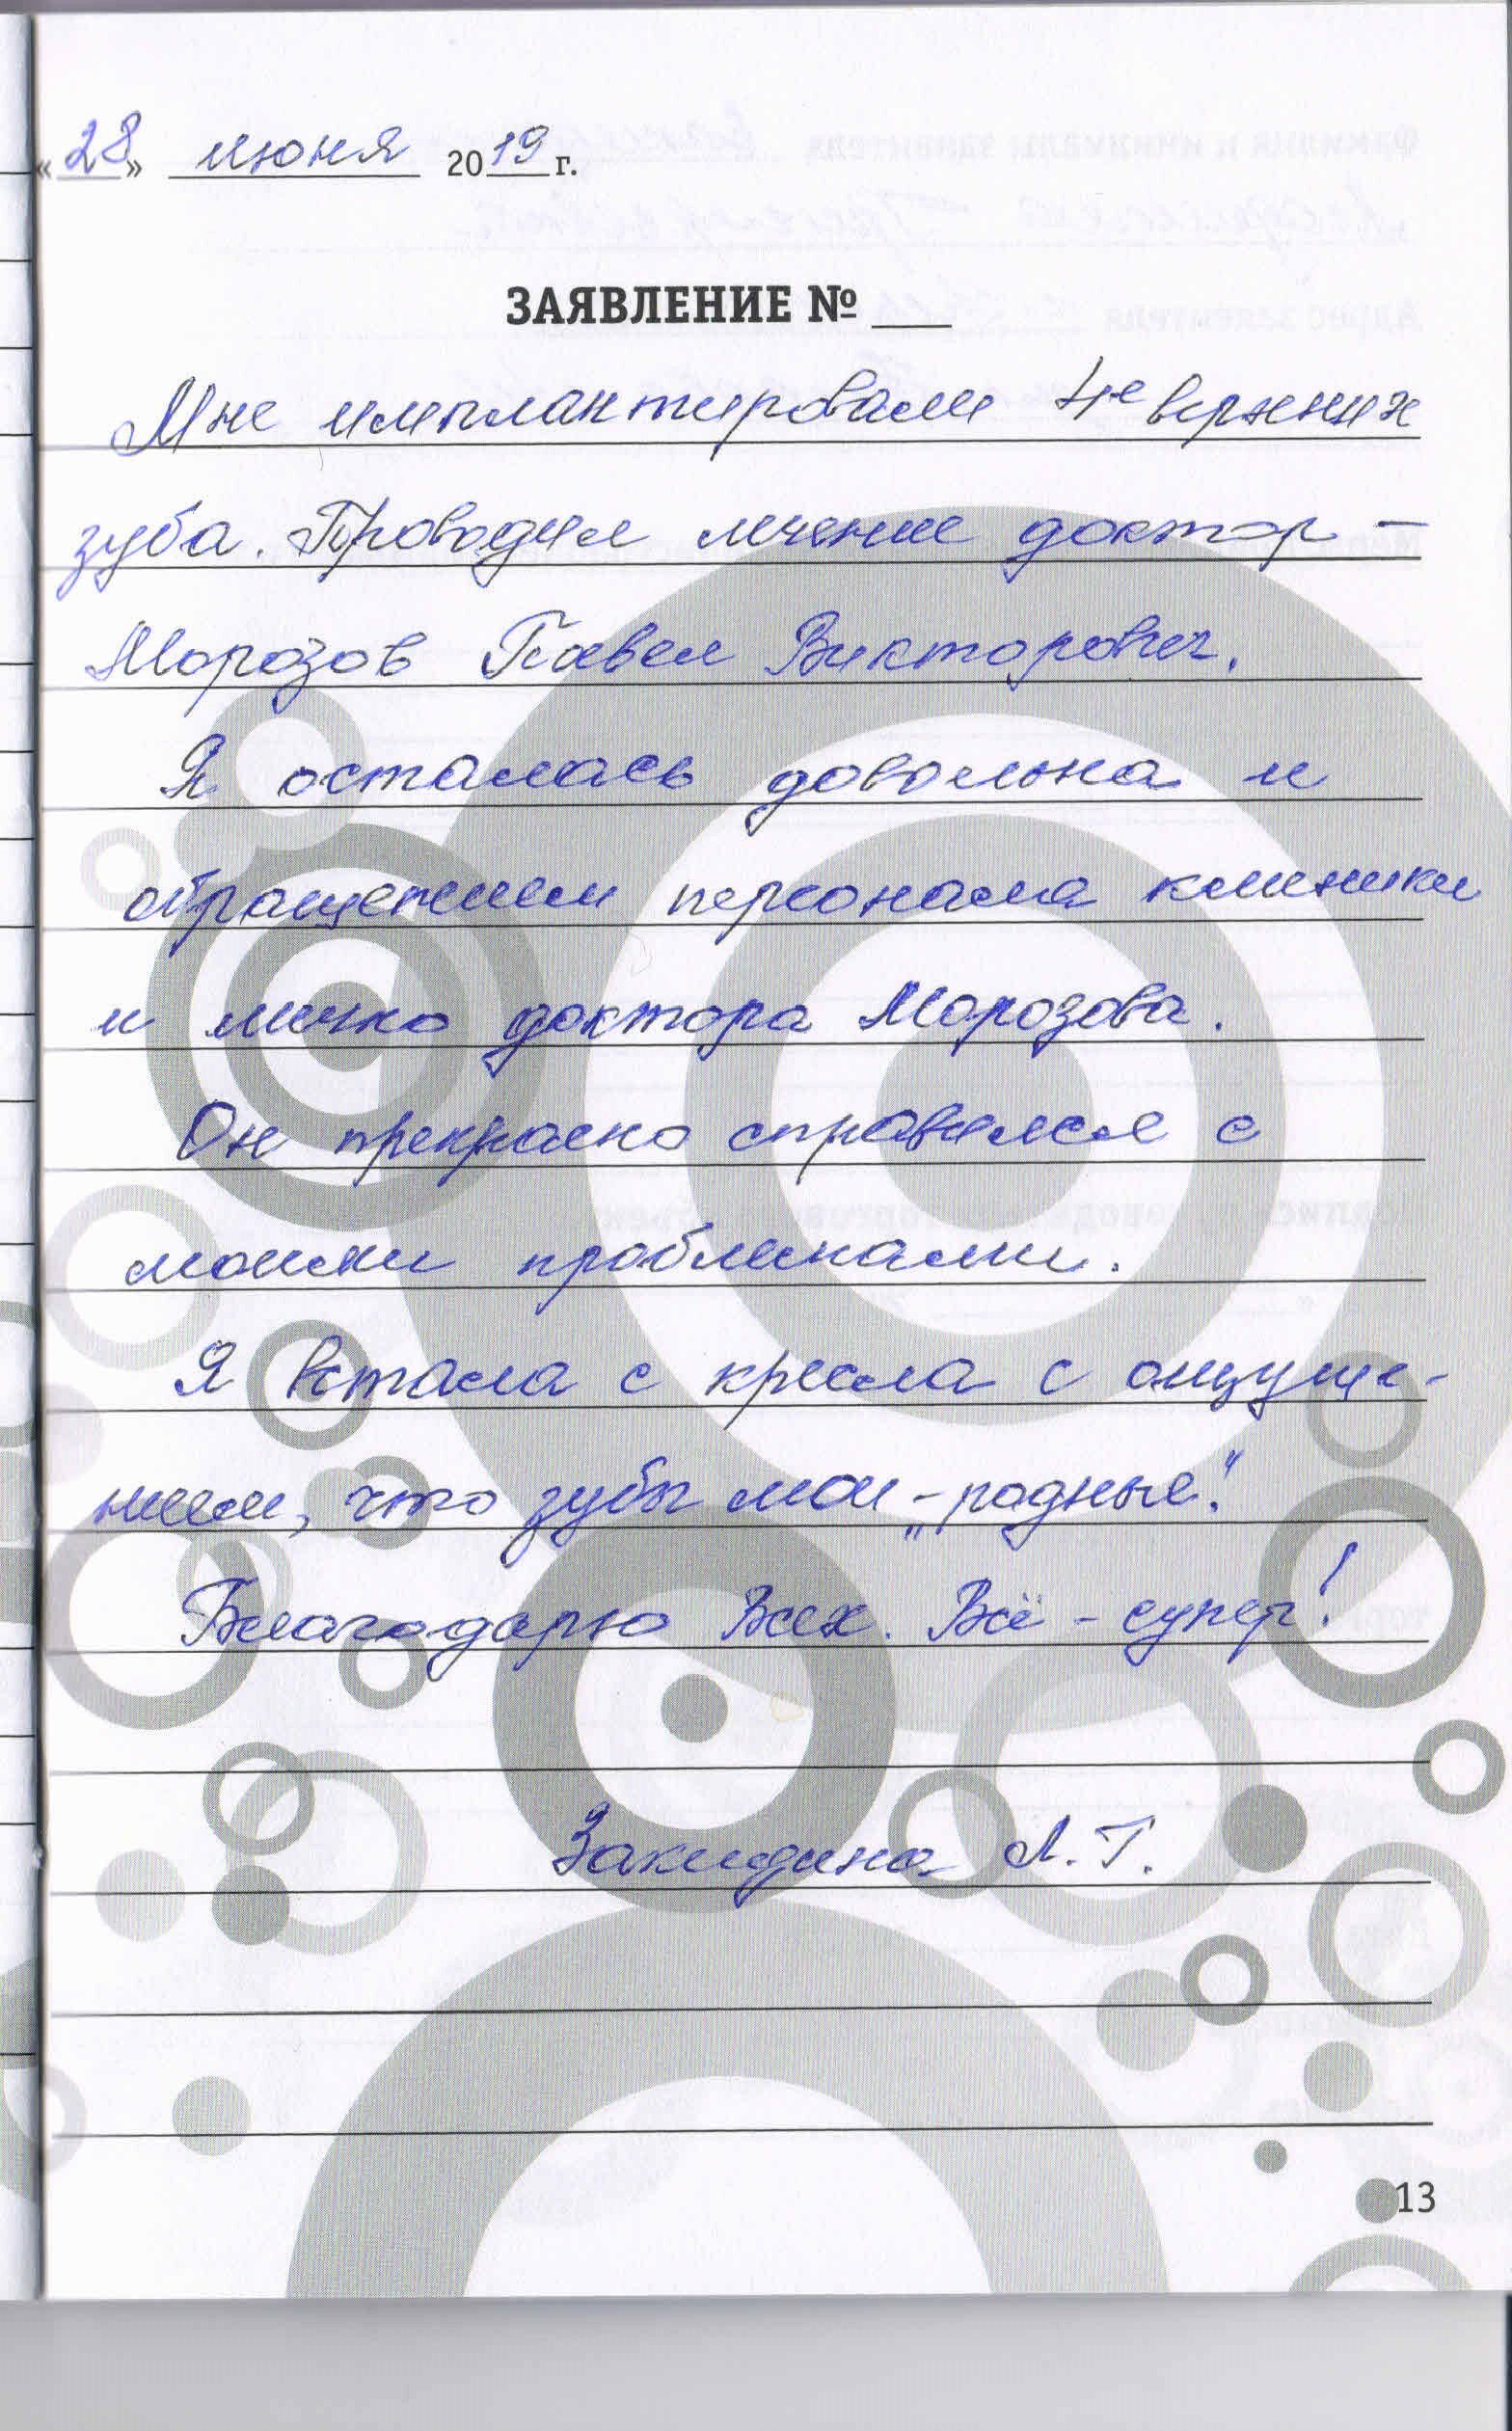 «28» июня 2019 г.
ЗАЯВЛЕНИЕ № ___
Мне имплантировали 4е верхних
зуба. Проводил лечение доктор –
Морозов Павел Викторович.
Я осталась довольна и
обращением персонала клиники
и лично доктора Морозова.
Он прекрасно справился с
моими проблемами.
Я встала с кресла с ощуще-
нием, что зубы мои – „родные".
Благодарю Всех. Всё – супер!
Закидина Л. Г.
13